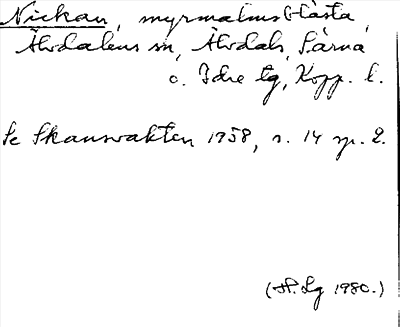 Nickan, myrmalmsblästa,
Älvdalens sn, Älvdals, Särna
o. Idre tg, Kopp. l.
Se Skansvakten 1958, s. 14 sp. 2.
(H.Lg 1980.)